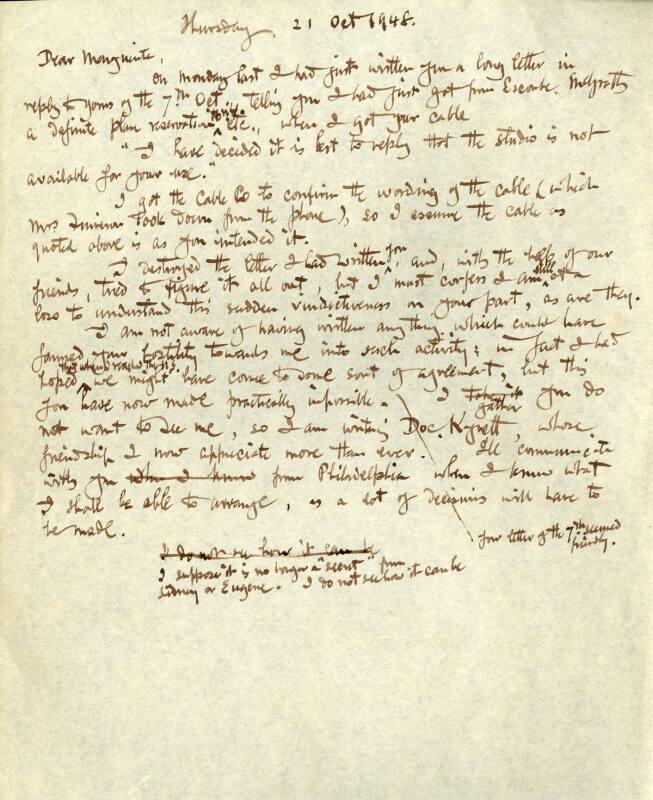 Thursday 21 Oct 1948.
Dear Marguerite,
On Monday last I had just written you a long letter in
reply to yours of the 7th Oct, telling you I had just got from Escombe, McGrath
a definite plan reservation etc., when I got your cable
"I have decided it is best to reply that the studio is not
available for your use."
I got the Cable Co to confirm the wording of the cable (which
Mrs took down from the phone), so I assume the cable as
quoted above is as you intended it.
I destroyed the letter I had written you, and, with the help of our
friends, tried to figure it all out, but I must confess I am still at a
loss to understand this sudden vindictiveness on your part, as are they.
I am not aware of having written anything which could have
fanned your hostility towards me into such activity; in fact I had
hoped we might have come to some sort of agreement, but this
you have now made practically impossible. I take it gather you do
not want to see me, so I am writing Doc. Kynett, whose
friendship I now appreciate more than ever. I'll communicate
with you when I know from Philadelphia when I know what
I shall be able to arrange, as a lot of decisions will have to
be made.
Your letter of the 7th seemed
friendly.
I do not see how it can be
I suppose it is no longer a "secret" from
Sidney or Eugene. I do not see how it can be